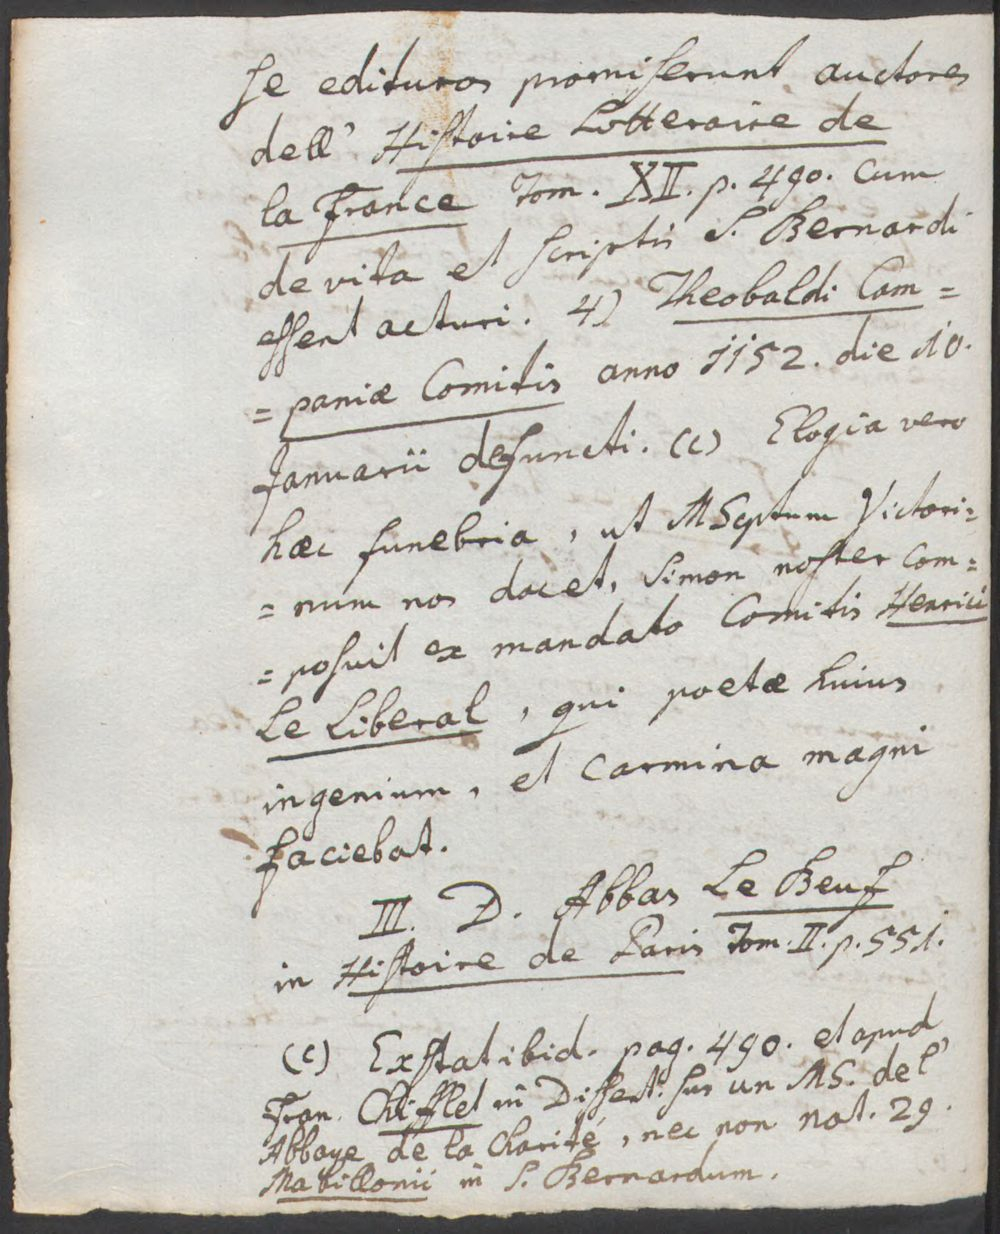 se edituros promiserunt auctores
dell' Histoire Litteraire de
la France Tom. XII. p. 490. cum
de vita et scriptis S. Bernardi
essent acturi. 4) Theobaldi Cam=
=paniæ Comitis anno 1152. die 10.
Januarii defuncti. (c) Elogia vero
hæc funebria, ut MSCptum Victori=
=num nos docet, Simon noster com=
=posuit ex mandato Comitis Henrici
Le Liberal, qui poetæ huius
ingenium, et carmina magni
faciebat.
III. D. Abbas Le Beuf
in Histoire de Paris Tom. II. p. 551.
(c) Exstat ibid. pag. 490. et apud
Fran. Chifflet in Dissert. sur un MS. del'
Abbaye de la Charité, nec non not. 29.
Mabillonii in S. Bernardum.